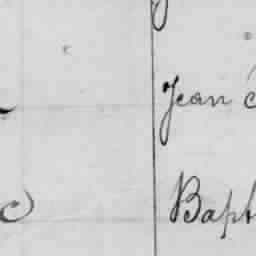 Jean
Bapt